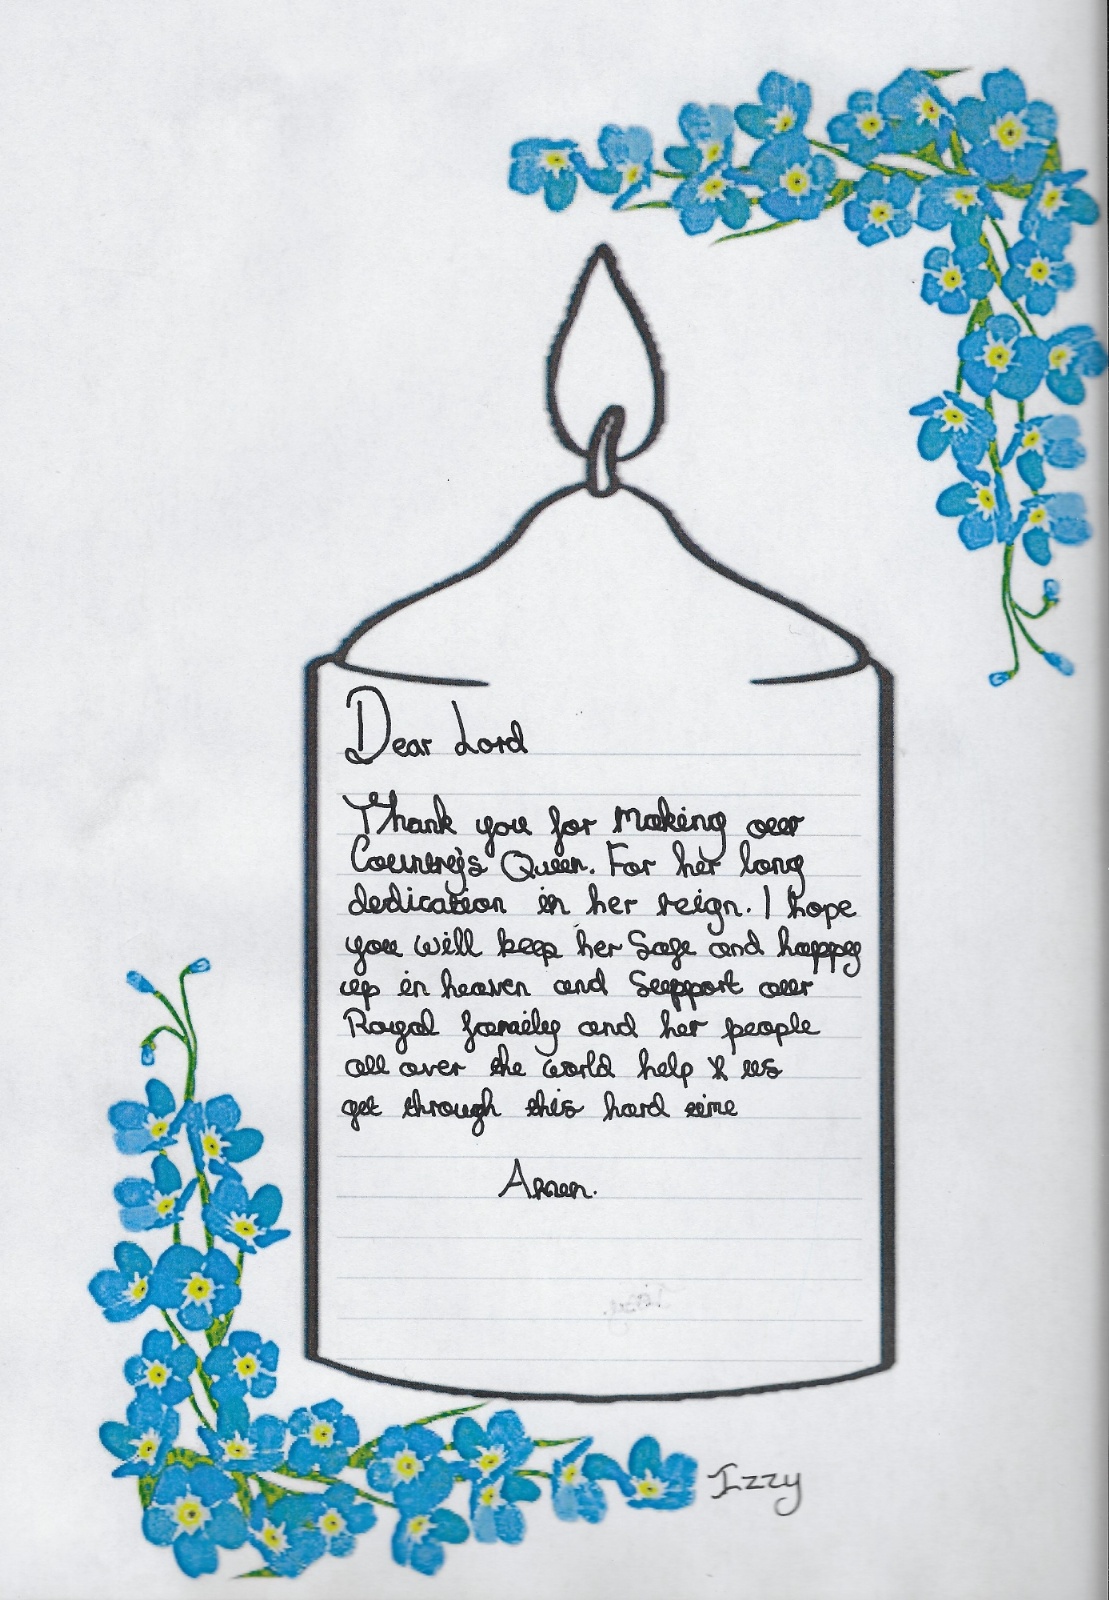 Dear Lord
Thank you for making our
Country's Queen. For her long
dedication in her reign. I hope
you will keep her Safe and happy
up in heaven and Support our
Royal family and her people
all over the world help us
get through this hard time
Amen.
Izzy